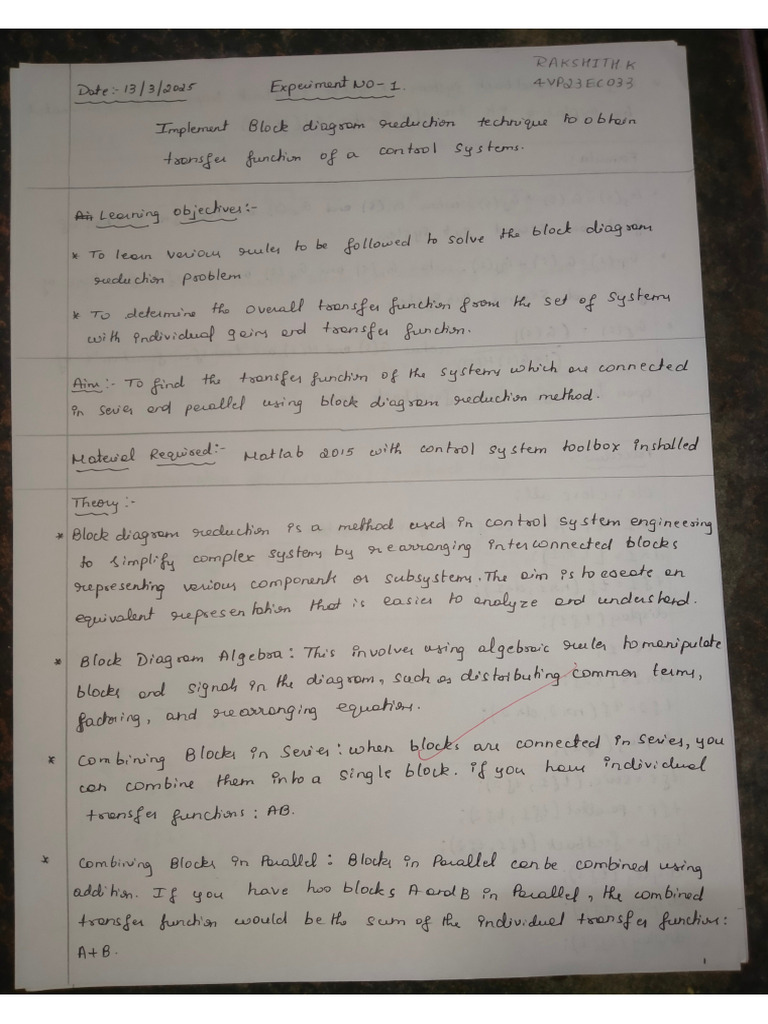 RAKSHITH K
Date:- 13/3/2025 Experiment NO-1.
4VP23EC033
Implement Block diagram reduction technique to obtain
transfer function of a control systems.
Learning objectives:-
* To learn various rules to be followed to solve the block diagram
reduction problem
* To determine the overall transfer function from the set of systems
with individual gains and transfer function.
Aim:- To find the transfer function of the systems which are connected
in series and parallel using block diagram reduction method.
Material Required:- Matlab 2015 with control system toolbox installed
Theory:-
* Block diagram reduction is a method used in control system engineering
to simplify complex system by rearranging interconnected blocks
representing various components or subsystems. The aim is to create an
equivalent representation that is easier to analyze and understand.
* Block Diagram Algebra: This involves using algebraic rules to manipulate
blocks and signals in the diagram, such as distributing common terms,
factoring, and rearranging equations.
* Combining Blocks in Series: when blocks are connected in series, you
can combine them into a single block. if you have individual
transfer functions: AB.
* Combining Blocks in Parallel: Blocks in Parallel can be combined using
addition. If you have two blocks A and B in Parallel, the combined
transfer function would be the sum of the individual transfer functions:
A+B.
1